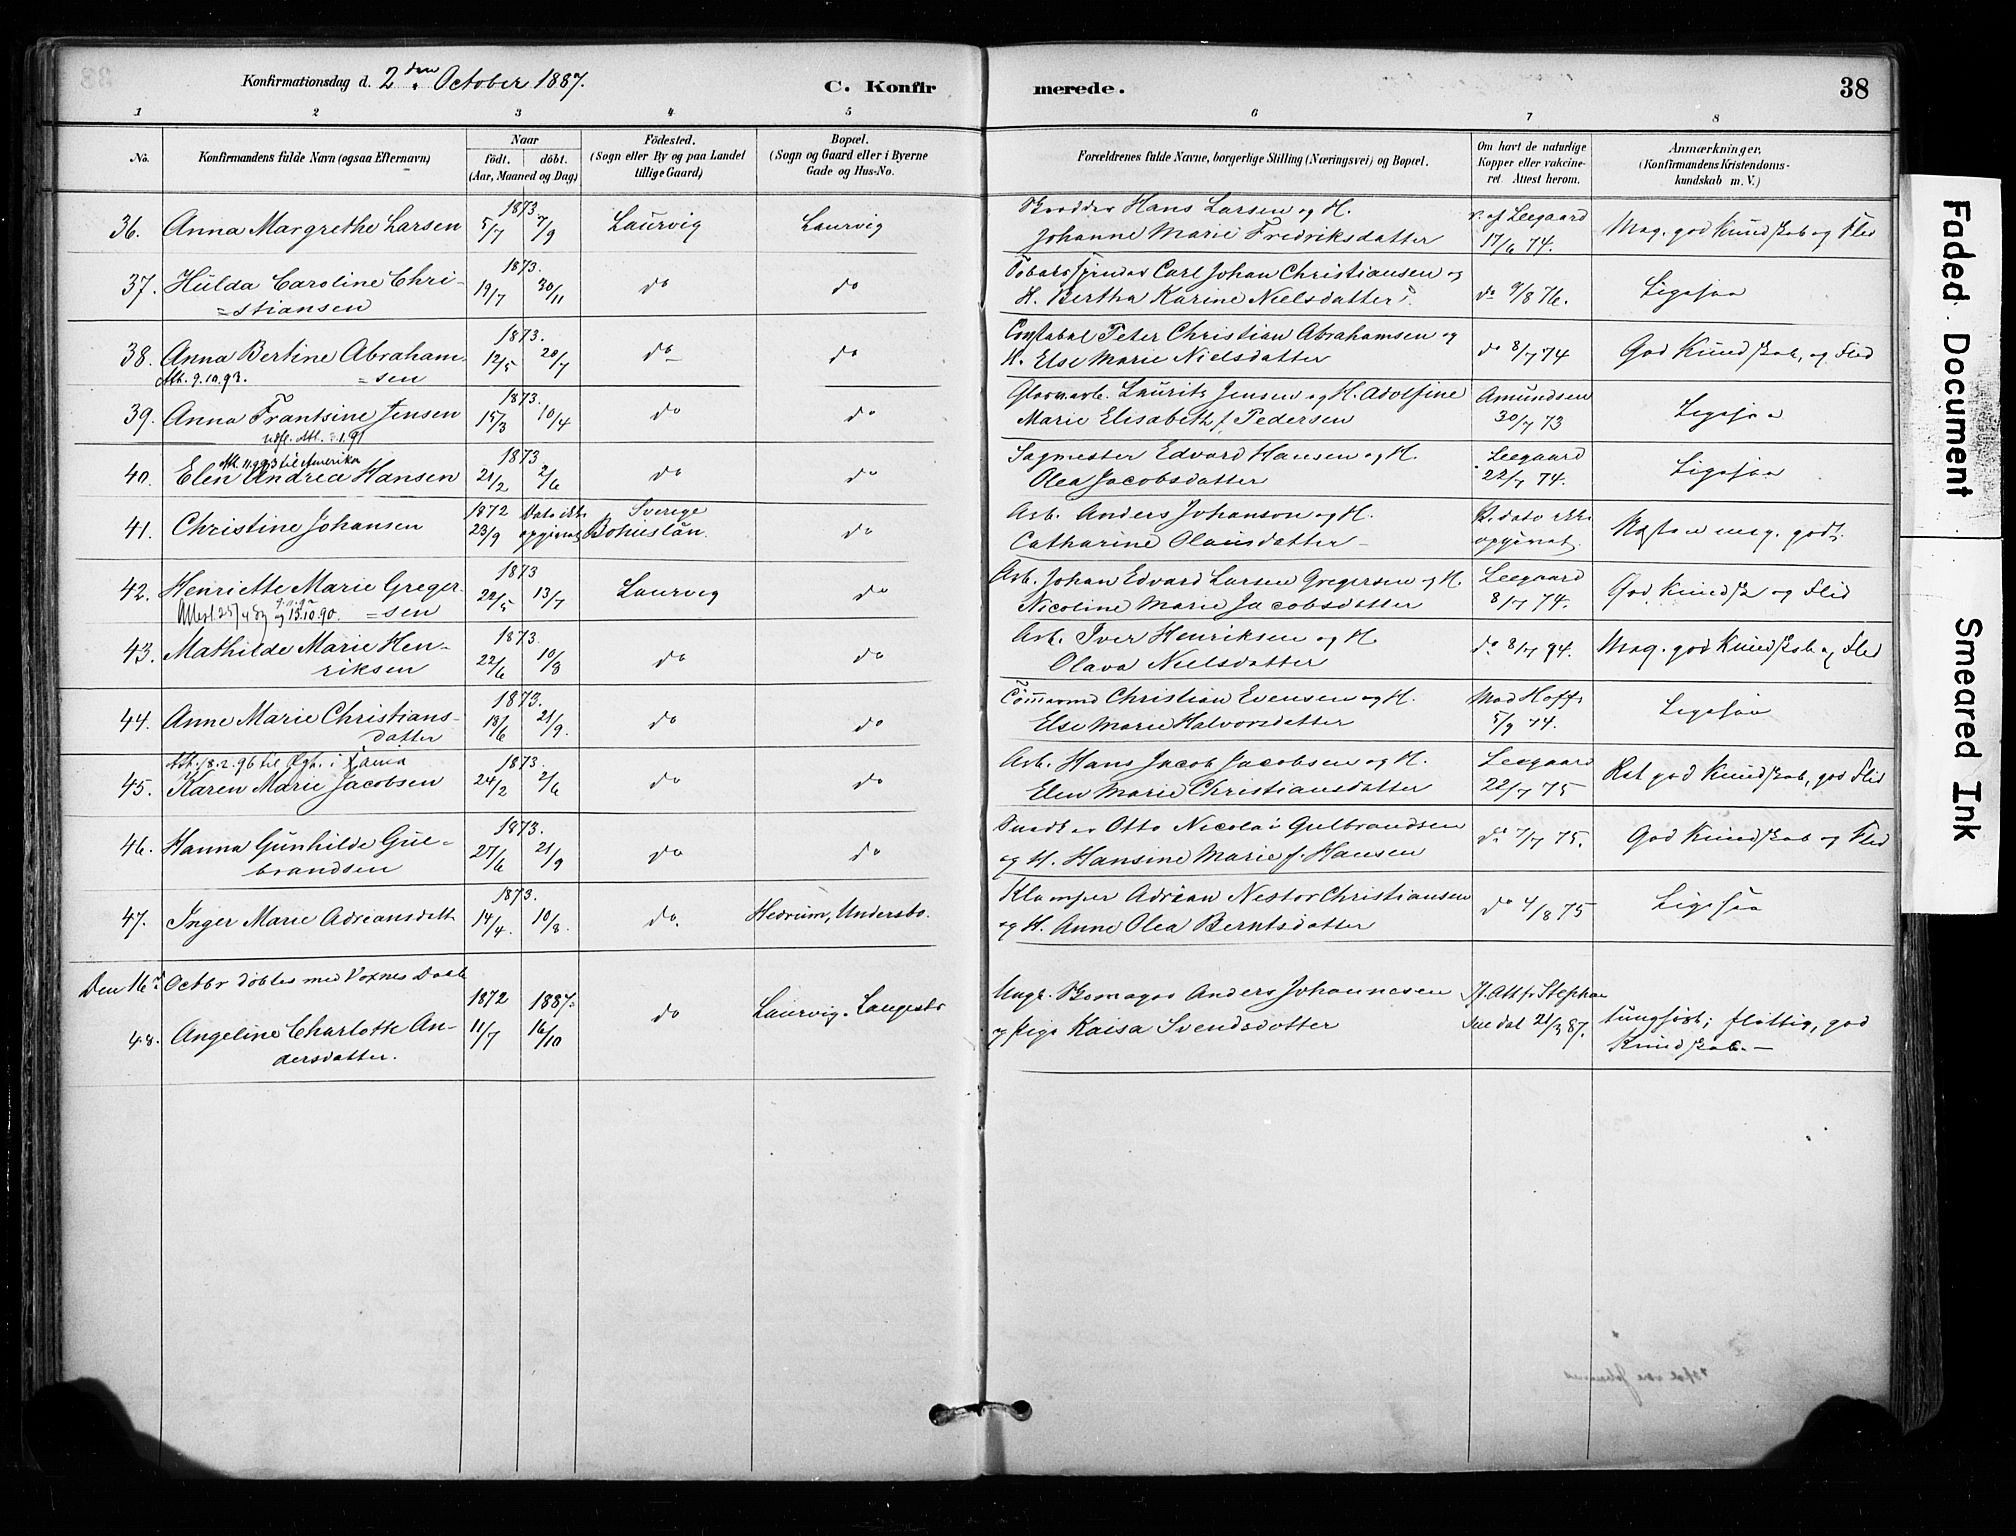 Konfirmationsdag d. 2den October 1887.
C. Konfirmerede.
38
1 2 3 4 5 6 7 8
No.
Konfirmandens fulde Navn (ogsaa Efternavn)
Naar
født. døbt.
(Aar, Maaned og Dag)
Fødested.
(Sogn eller By og paa Landet
tillige Gaard)
Bopæl.
(Sogn og Gaard eller i Byerne
Gade og Hus-No.
Forældrenes fulde Navne, borgerlige Stilling (Næringsvei) og Bopæl.
Om havt de naturlige
Kopper eller vakcine-
ret. Attest herom.
Anmærkninger,
(Konfirmandens Kristendoms-
kundskab m. V.)
36. Anna Margrethe Larsen 1873. 5/7 7/9 Laurvig Laurvig
Hans Larsen og H.
Johanne Marie Fredriksdatter
v. af Leegaard
17/6 74.
Meg. god Kundskab og Flid
37. Hulda Caroline Chri-
=stiansen
1873. 19/7 30/11 do do
Carl Johan Christiansen og
H. Bertha Karine Nielsdatter
do 9/8 76.
Ligesaa
38. Anna Bertine Abraham-
=sen
Att. 9.10.93.
1873. 12/5 20/7 do do
Constabel Peter Christian Abrahamsen og
H. Else Marie Nielsdatter
do 8/7 74
God Kundskab, og Flid
39. Anna Frantsine Jensen
1873. 15/3 10/4 do do
Glasmarb. Laurits Jensen og H. Adolfine
Marie Elisabeth f. Pedersen
Amundsen
30/7 73
Ligesaa
40. Elen Andrea Hansen
til Amerika
1873 21/2 2/6 do do
Sagmester Edvard Hansen og H.
Olea Jacobsdatter
Leegaard
22/7 74.
Ligesaa
41. Christine Johansen
1872 23/9 Dato ikke
opgivet
Sverige
Bohuslän.
do
Arb. Anders Johanson og H.
Catharine Olausdatter
dato ikke
opgivet
Næsten meg. godt.
42. Henriette Marie Greger-
=sen
13.10.90.
1873 22/5 13/7 Laurvig do
Arb. Johan Edvard Larsen Gregersen og H.
Nicoline Marie Jacobsdatter
Leegaard
8/7 74.
God Kundsk og Flid
43. Mathilde Marie Hen-
riksen
1873. 22/6 10/8 do do
Arb. Iver Henriksen og H.
Olava Nielsdatter
do 8/7 94.
Meg. god Kundskab og Flid
44. Anne Marie Christians-
datter
1873. 18/6 21/9. do do
Tømmermd Christian Evensen og H.
Else Marie Halvorsdatter
Mad Hoff
5/9 74.
Ligesaa
45. Karen Marie Jacobsen
1873. 24/2 2/6 do do
Arb. Hans Jacob Jacobsen og H.
Elen Marie Christiansdatter
Leegaard
22/7 75
Ret god Kundskab, god Flid
46. Hanna Gunhilde Gul-
brandsen
1873. 27/6 21/9 do do
Otto Nicolai Gulbrandsen
og H. Hansine Marie f. Hansen
do 7/7 75.
God Kundskab og Flid
47. Inger Marie Adriansdatt
1873. 14/4. 10/8. do. Hedrum, Undersbo.
Adrian Nestor Christiansen
og H. Anne Olea Berntsdatter
do 4/8 75
Ligesaa
Den 16de Octbr døbtes med Voxnes Daab
48. Angeline Charlotte An-
dersdatter.
1872 11/7 1887. 16/10 do Laurvig. Langestr
Ungk. Anders Johannesen
og Pige Kaisa Svendsdatter
21/3 87.
tunghørt; flittig, god
Kundskab. –
Faded Document
Smeared Ink